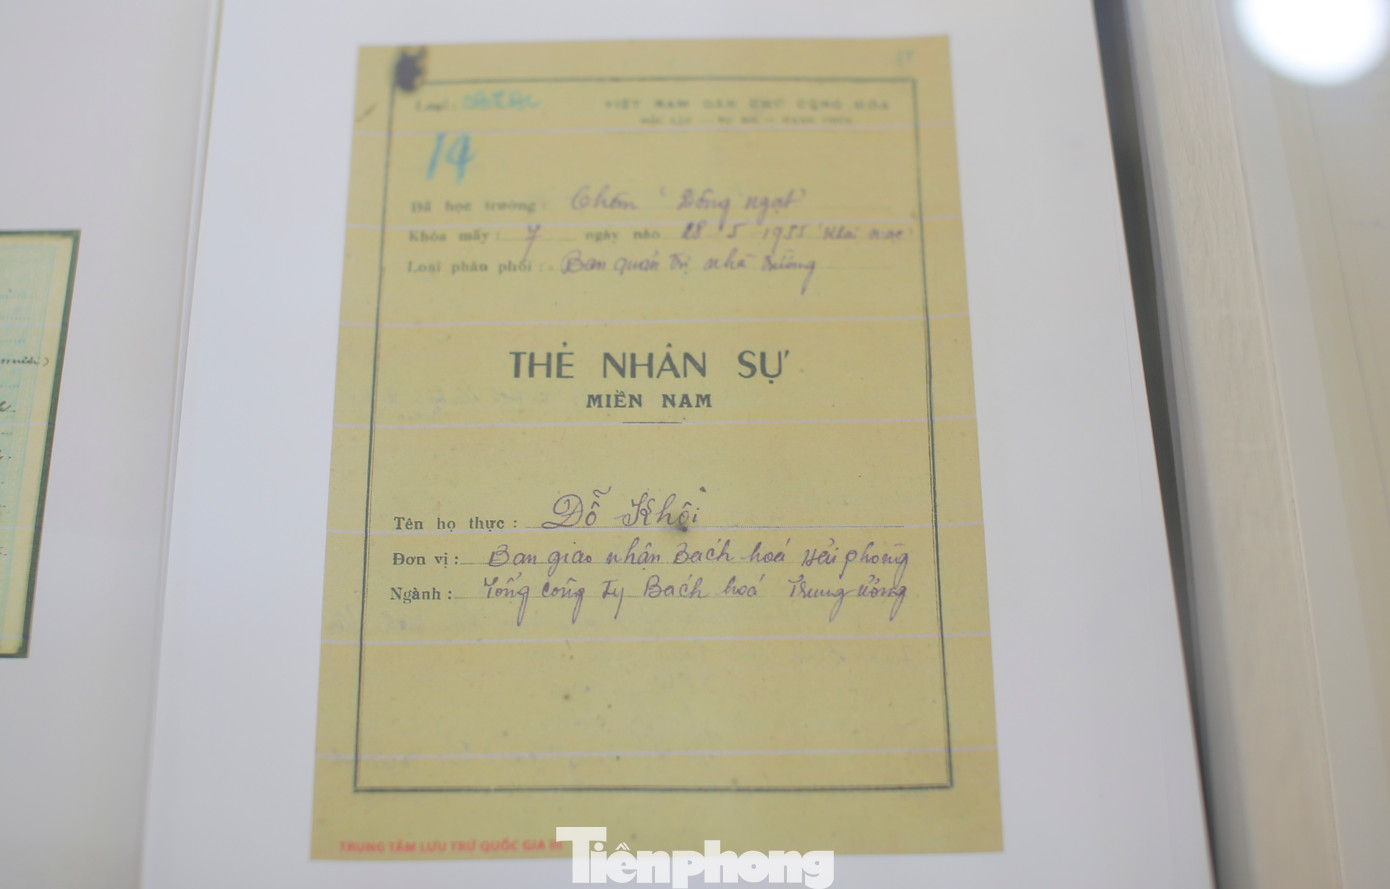 Loại:
VIỆT NAM DÂN CHỦ CỘNG HÒA
ĐỘC LẬP — TỰ DO — HẠNH PHÚC
14
Đã học trường: Chèm 'Đông ngạt'
Khóa mấy: 7 ngày nào 28 5 1955 'Khai mạc'
Loại phân phối: Ban quản trị nhà trường
THẺ NHÂN SỰ
MIỀN NAM
Tên họ thực: Đỗ Khôi
Đơn vị: Ban giao nhận Bách hoá Hải phòng
Ngành: Tổng công ty Bách hoá Trung ương
TRUNG TÂM LƯU TRỮ QUỐC GIA III
Tiềnphong